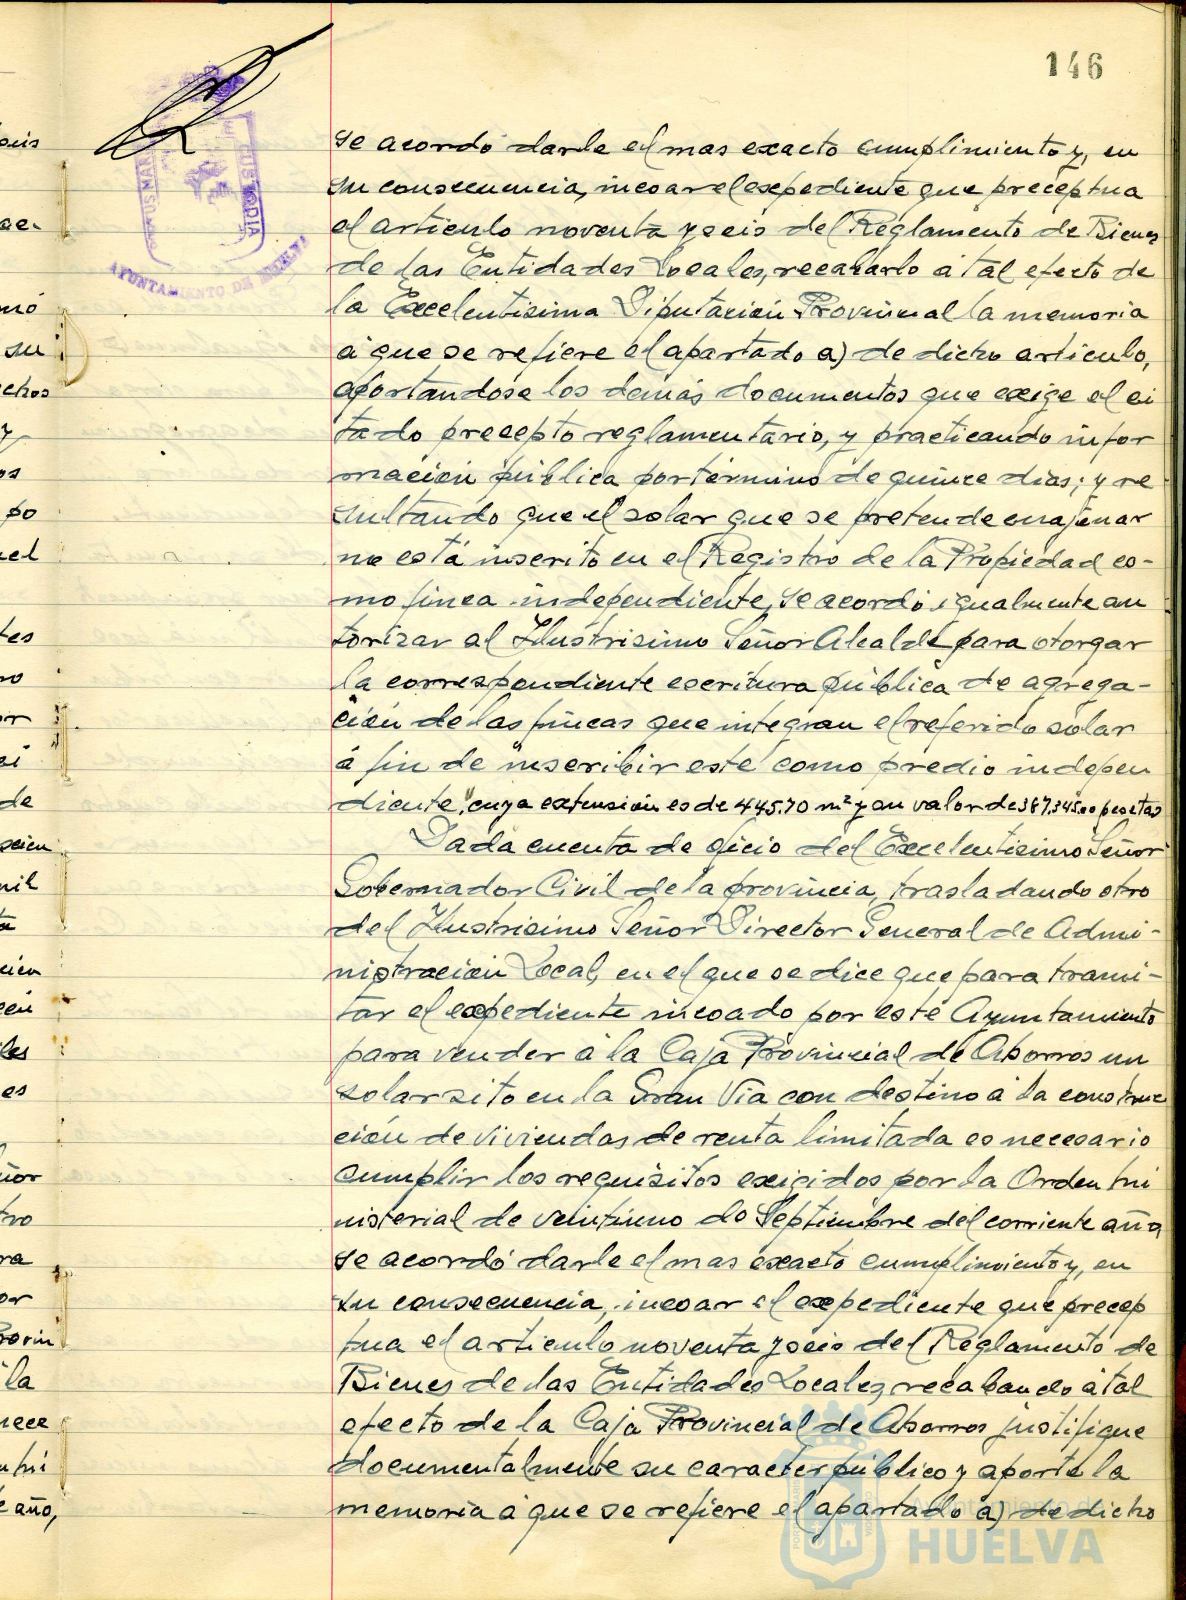 146
se acordó darle el mas exacto cumplimiento y, en
su consecuencia, incoar el expediente que preceptua
el articulo noventa y seis del Reglamento de Bienes
de las Entidades Locales, recabarlo á tal efecto de
la Excelentisima Diputación Provincial la memoria
á que se refiere el apartado a) de dicho articulo,
aportandose los demás documentos que exige el ci
tado precepto reglamentario, y practicando infor
mación pública por término de quince dias; y re
sultando que el solar que se pretende enajenar
no está inscrito en el Registro de la Propiedad co-
mo finca independiente, se acordó igualmente au
torizar al Ilustrisimo Señor Alcalde para otorgar
la correspondiente escritura pública de agrega-
ción de las fincas que integran el referido solar
á fin de inscribir este como predio indepen
diente, cuya extensión es de 445,70 m² y su valor de 387.345,00 pesetas
Dada cuenta de oficio del Excelentisimo Señor
Gobernador Civil de la provincia, trasladando otro
del Ilustrisimo Señor Director General de Admi-
nistración Local, en el que se dice que para trami-
tar el expediente incoado por este Ayuntamiento
para vender á la Caja Provincial de Ahorros un
solar sito en la Gran Via con destino á la construc
ción de viviendas de renta limitada es necesario
cumplir los requisitos exigidos por la Orden mi
nisterial de veintiuno de Septiembre del corriente año
se acordó darle el mas exacto cumplimiento y, en
su consecuencia, incoar el expediente que precep
tua el articulo noventa y seis del Reglamento de
Bienes de las Entidades Locales, recabando á tal
efecto de la Caja Provincial de Ahorros justifique
documentalmente su caracter público y aporte la
memoria á que se refiere el apartado a) de dicho
CUSTODIA
AYUNTAMIENTO DE HUELVA
Ayuntamiento de
HUELVA